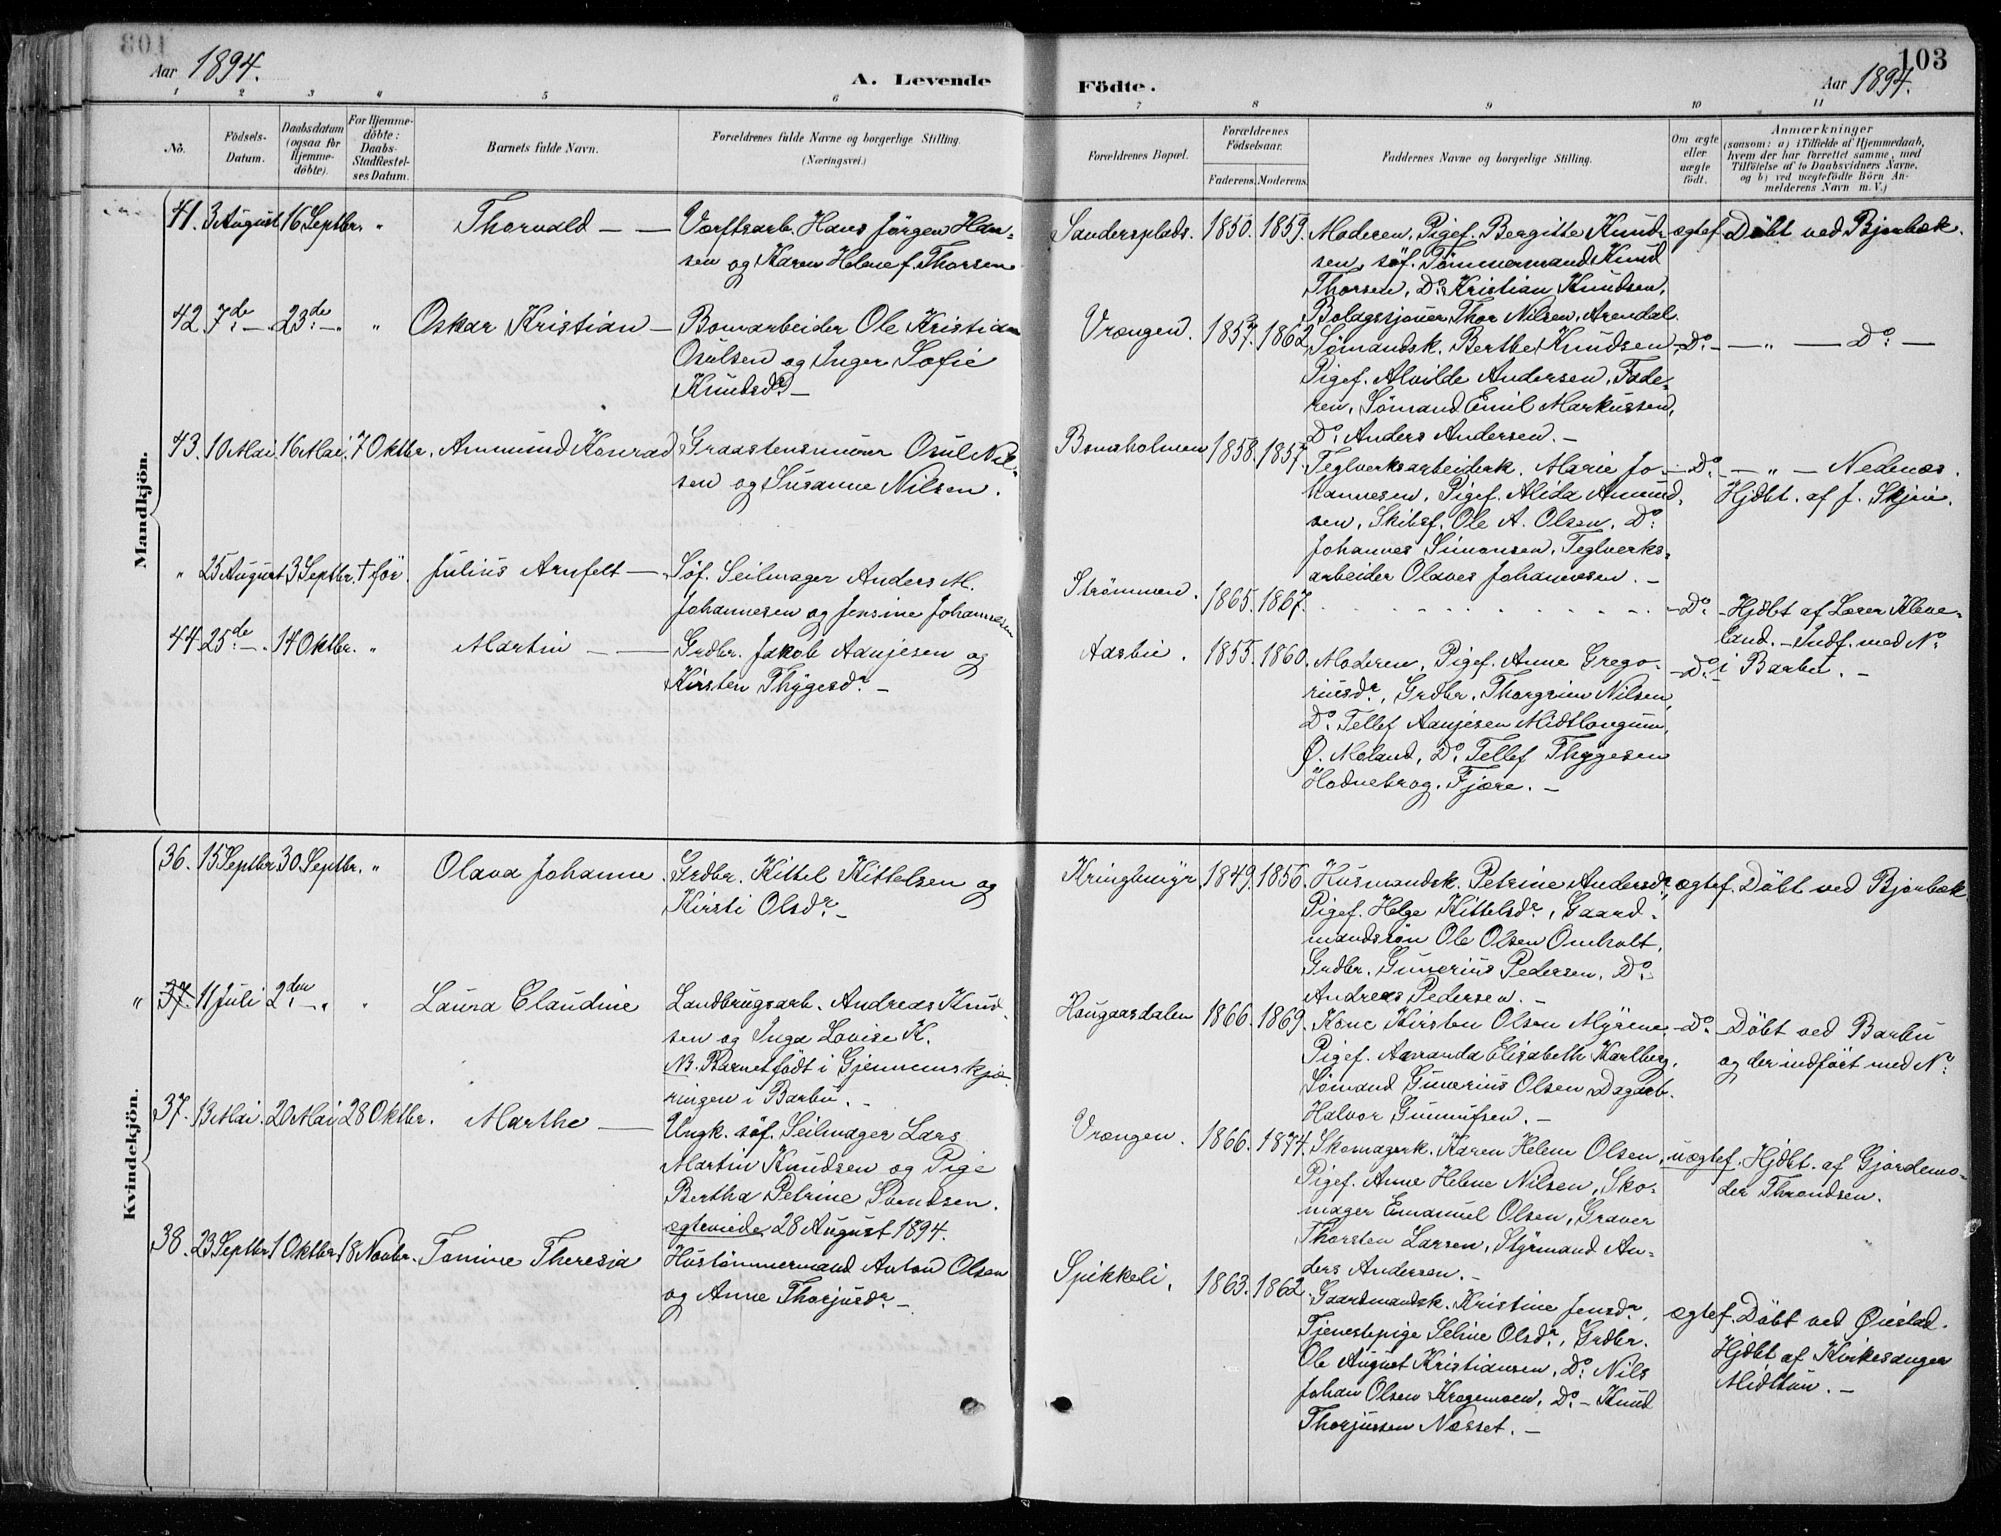 103
Aar 1894.
A. Levende
Födte.
Aar 1894.
1 2 3 4 5 6 7 8 9 10 11
No.
Födsels-
Datum.
Daabsdatum
(ogsaa for
Hjemme-
döbte).
For Hjemme-
döbte:
Daabs-
Stadfæstel-
ses Datum.
Barnets fulde Navn.
Forældrenes fulde Navne og borgerlige Stilling.
(Næringsvei.)
Forældrenes Bopæl.
Forældrenes
Födselsaar.
Faderens. Moderens.
Faddernes Navne og borgerlige Stilling.
Om ægte
eller
uægte
födt.
Anmærkninger
(saasom: a) i Tilfælde af Hjemmedaab,
hvem der har forrettet samme, med
Tilföielse af to Daabsvidners Navne,
og b) ved uægtefödte Börn An-
melderens Navn m. V.)
Mandkjön.
41. 3 August 16 Septbr. " Thorvald — —
Værftsarb. Hans Jörgen Han-
sen og Karen Helene f. Thorsen
Sandersplads. 1850. 1859.
Moderen, Pigef. Bergitte Knud-
sen, söf. Tömmermand Knud
Thorsen, Do Kristian Knudsen,
Bolagssjouer Thor Nilsen, Arendal.
ægtef. Döbt ved Bjorbæk.
42. 7de — 23de — " Oskar Kristian —
Bomarbeider Ole Kristian
Osulsen og Inger Sofie
Knudsdr —
Vrængen. 1857. 1862
Sömandsk. Berthe Knudsen
Pigef. Alvilde Andersen, Fade-
ren, Sömand Emil Markussen,
Do Anders Andersen. —
— Do — — " — Do —
43. 10 Mai 16 Mai 7 Oktbr. Ammund Konrad
Graastensmurer Osul Nil-
sen og Susanne Nilsen.
Bomsholmen 1858. 1857.
Teglverksarbeiderk. Marie Jo-
hannesen, Pigef. Alida Amund-
sen, Skibsf. Ole A. Olsen, Do
Johannes Simonsen, Teglverks-
arbeider Olaves Johannesen. —
— Do — " — Nedenæs.
Hjdbt. af J. Skjeie.
" 25 August 3 Septbr. † för. Julius Arnfelt —
Söf. Seilmager Anders M.
Johannesen og Jensine Johannesen
Strömmen. 1865. 1867.
— Do — Hjdbt af Lærer Kleve-
land. — Indf. med No
i Barbu. —
44. 25de — 14 Oktbr. " Martin — —
Grdbr. Jakob Aanjesen og
Kirsten Thygesdr —
Aasbie. 1855. 1860.
Moderen, Pigef. Anne Grego-
riusdr, Grdbr. Thorgrim Nilsen,
Do Tellef Aanjesen Midtlongum,
Ö. Moland, Do Tellef Thygesen
Hodnebrog, Fjære. —
— Do —
Kvindekjön.
36. 15 Septbr 30 Septbr. " Olava Johanne.
Grdbr. Kittel Kittelsen og
Kirsti Olsdr —
Kringlemyr 1849. 1856.
Husmandsk. Petrine Andersdr,
Pigef. Helge Kittelsdr, Gaard-
mandssön Ole Olsen Omholt,
Grdbr. Gunerius Pedersen, Do
Andreas Pedersen. —
ægtef. Döbt ved Bjorbæk
" 37. 11 Juli 2den — " " Laura Claudine
Landbrugsarb. Andreas Knud-
sen og Inga Lovise K.
NB. Barnet födt i Gjennemskjæ-
ringen i Barbu. —
Hougaasdalen 1866. 1869.
Kone Kirsten Olsen Myrene
Pigef. Amanda Elisabeth Karlberg,
Sömand Gunerius Olsen, Dagarb.
Halvor Gunnufsen. —
— Do — Döbt ved Barbu
og der indfört med No
37. 13 Mai. 20 Mai 28 Oktbr. Marthe —
Ungk. söf. Seilmager Lars
Martin Knudsen og Pige
Bertha Petrine Svendsen.
ægteviede 28 August 1894.
Vrængen. 1866. 1874.
Skomagerk. Karen Helene Olsen,
Pigef. Anne Helene Nilsen, Sko-
mager Emanuel Olsen, Graver
Thorsten Larsen, Styrmand An-
ders Andersen. —
uægtef. Hjdbt. af Gjordemo-
der Throndsen.
38. 23 Septbr 1 Oktbr 18 Novbr. Tomine Theresia
Hustömmermand Anton Olsen
og Anne Thorjusdr —
Spikkeli. 1863. 1862.
Gaardmandsk. Kristine Jensdr,
Tjenestepige Seline Olsdr, Grdbr.
Ole August Kristiansen, Do Nils
Johan Olsen Kragemoen, Do — Knud
Thorjussen Næsset. —
ægtef. Döbt ved Öiestad.
Hjdbt af Kirkesanger
Midtbøu. —